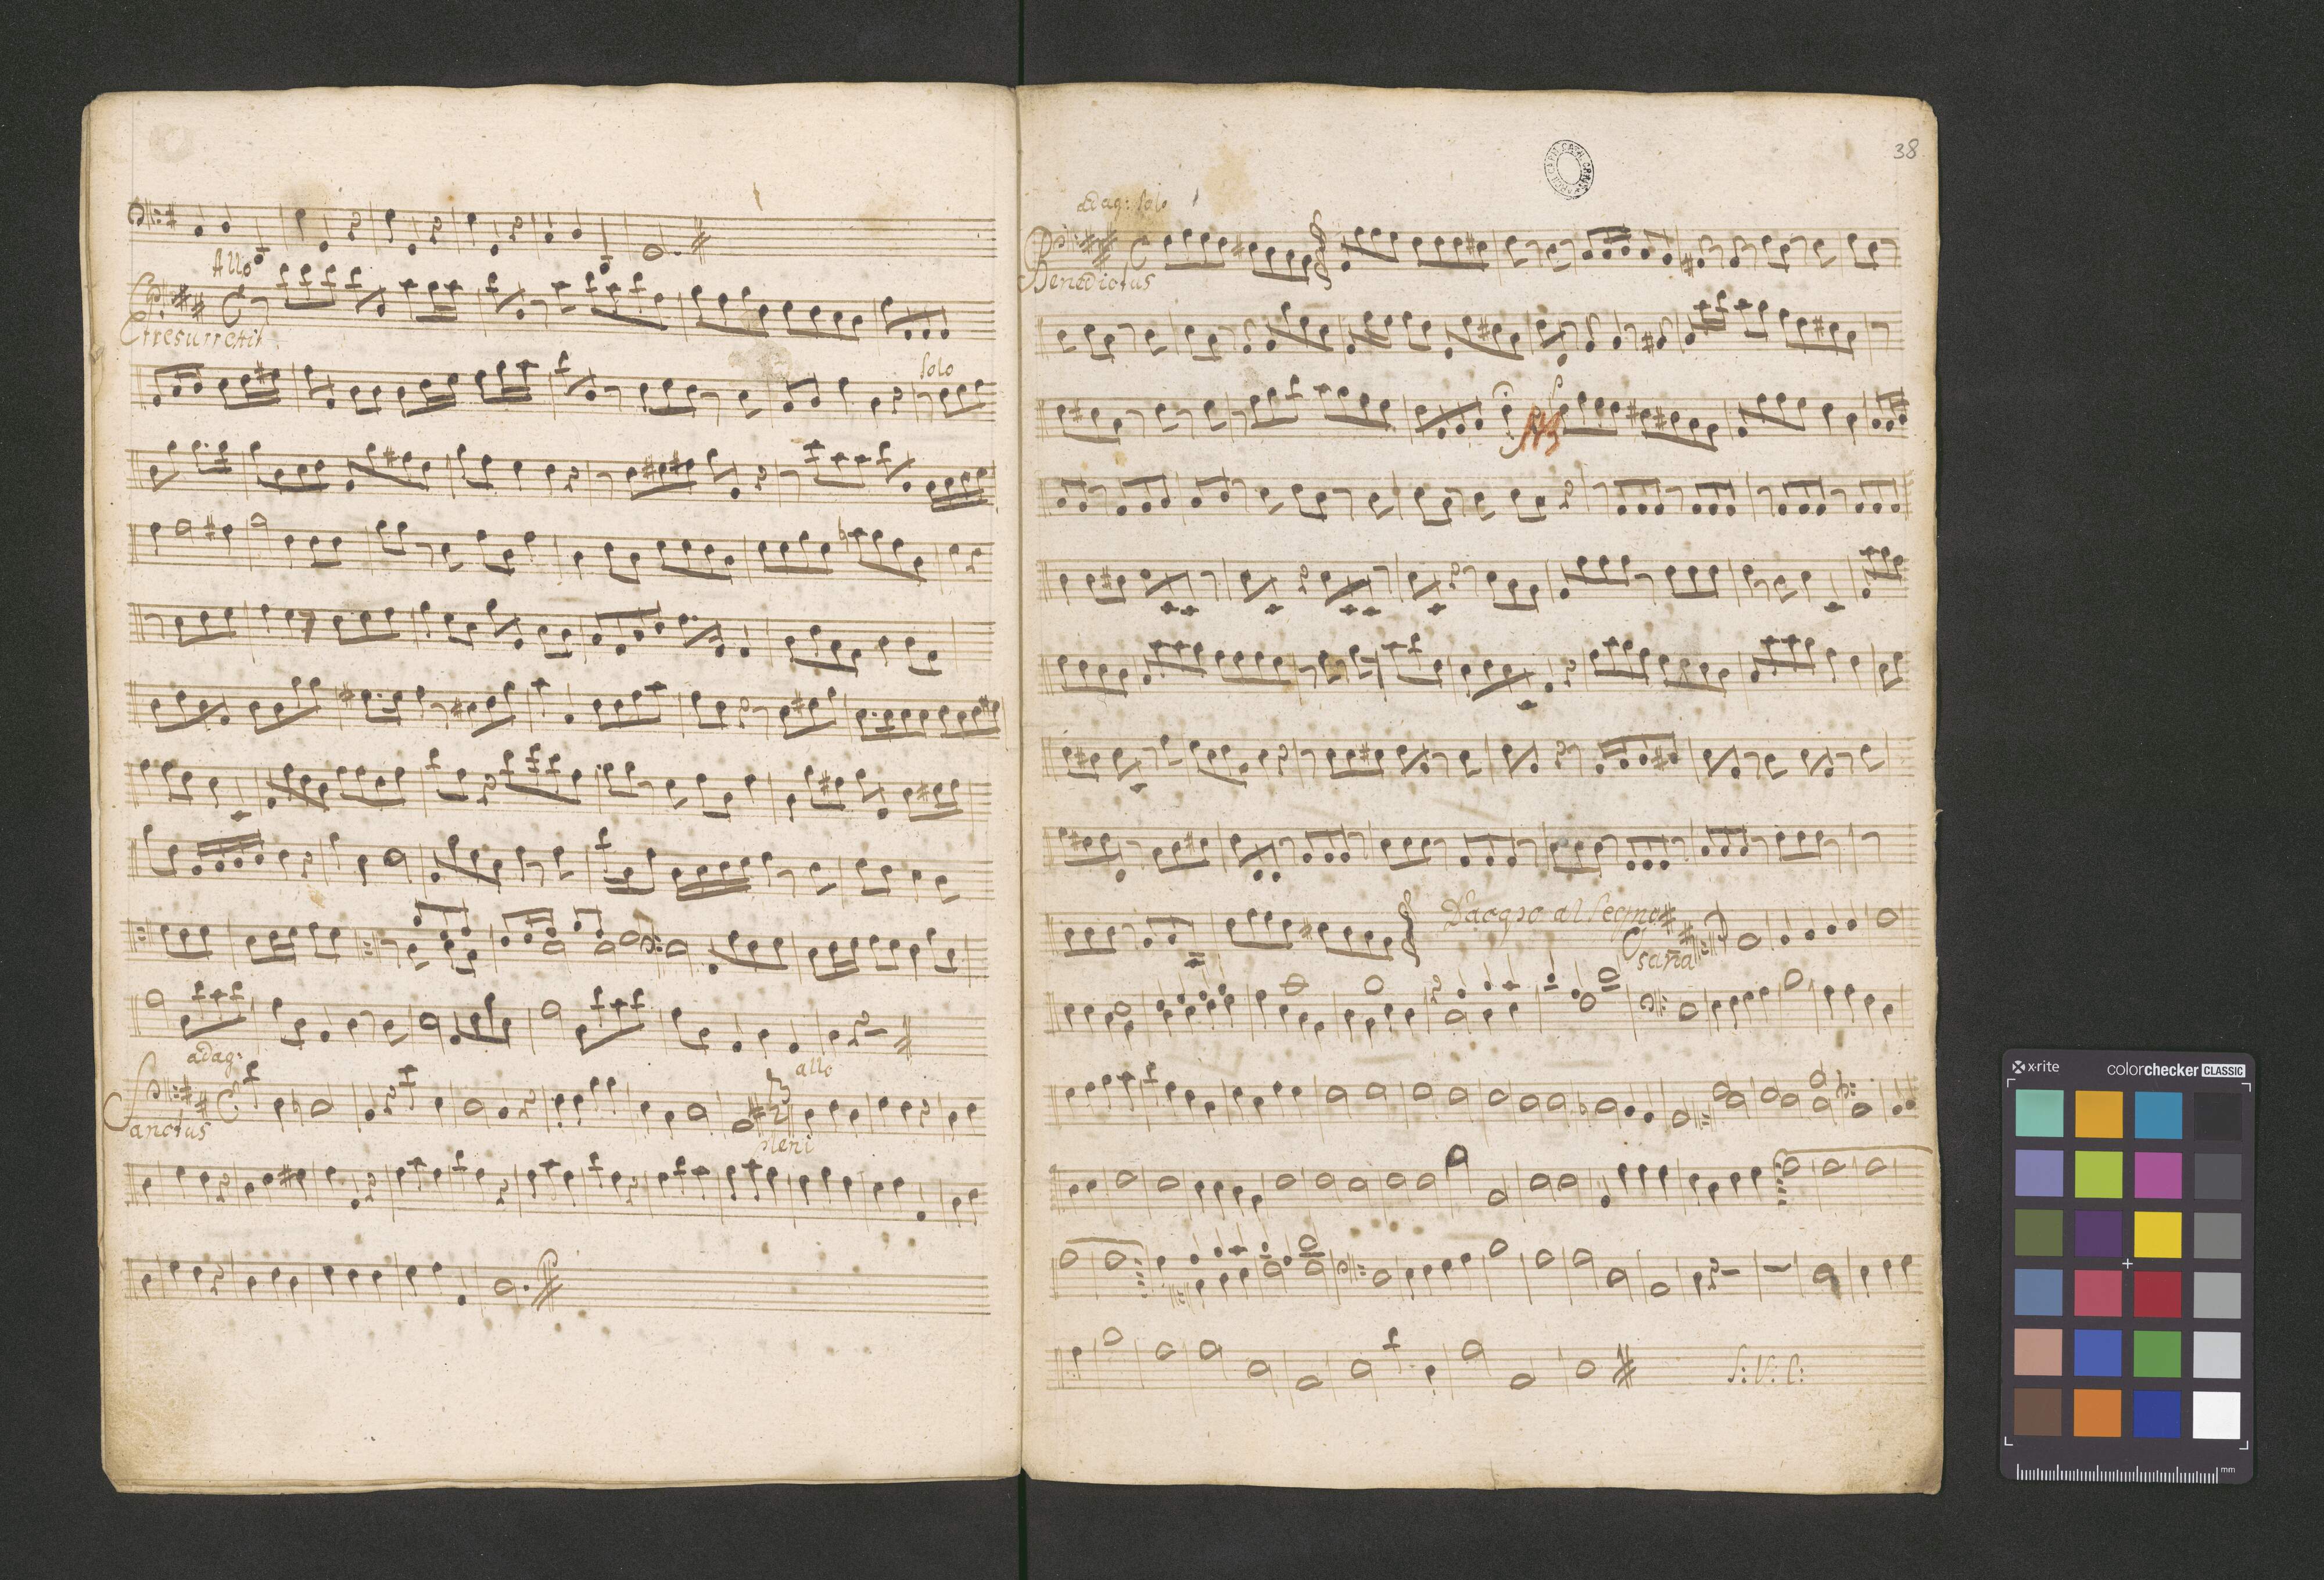 All̊o
Et resurrexit
Solo
adag:
allo
Sanctus
pleni
38
adag: Solo
Benedictus
Osana
S: V: C:
x-rite
colorchecker CLASSIC
mm